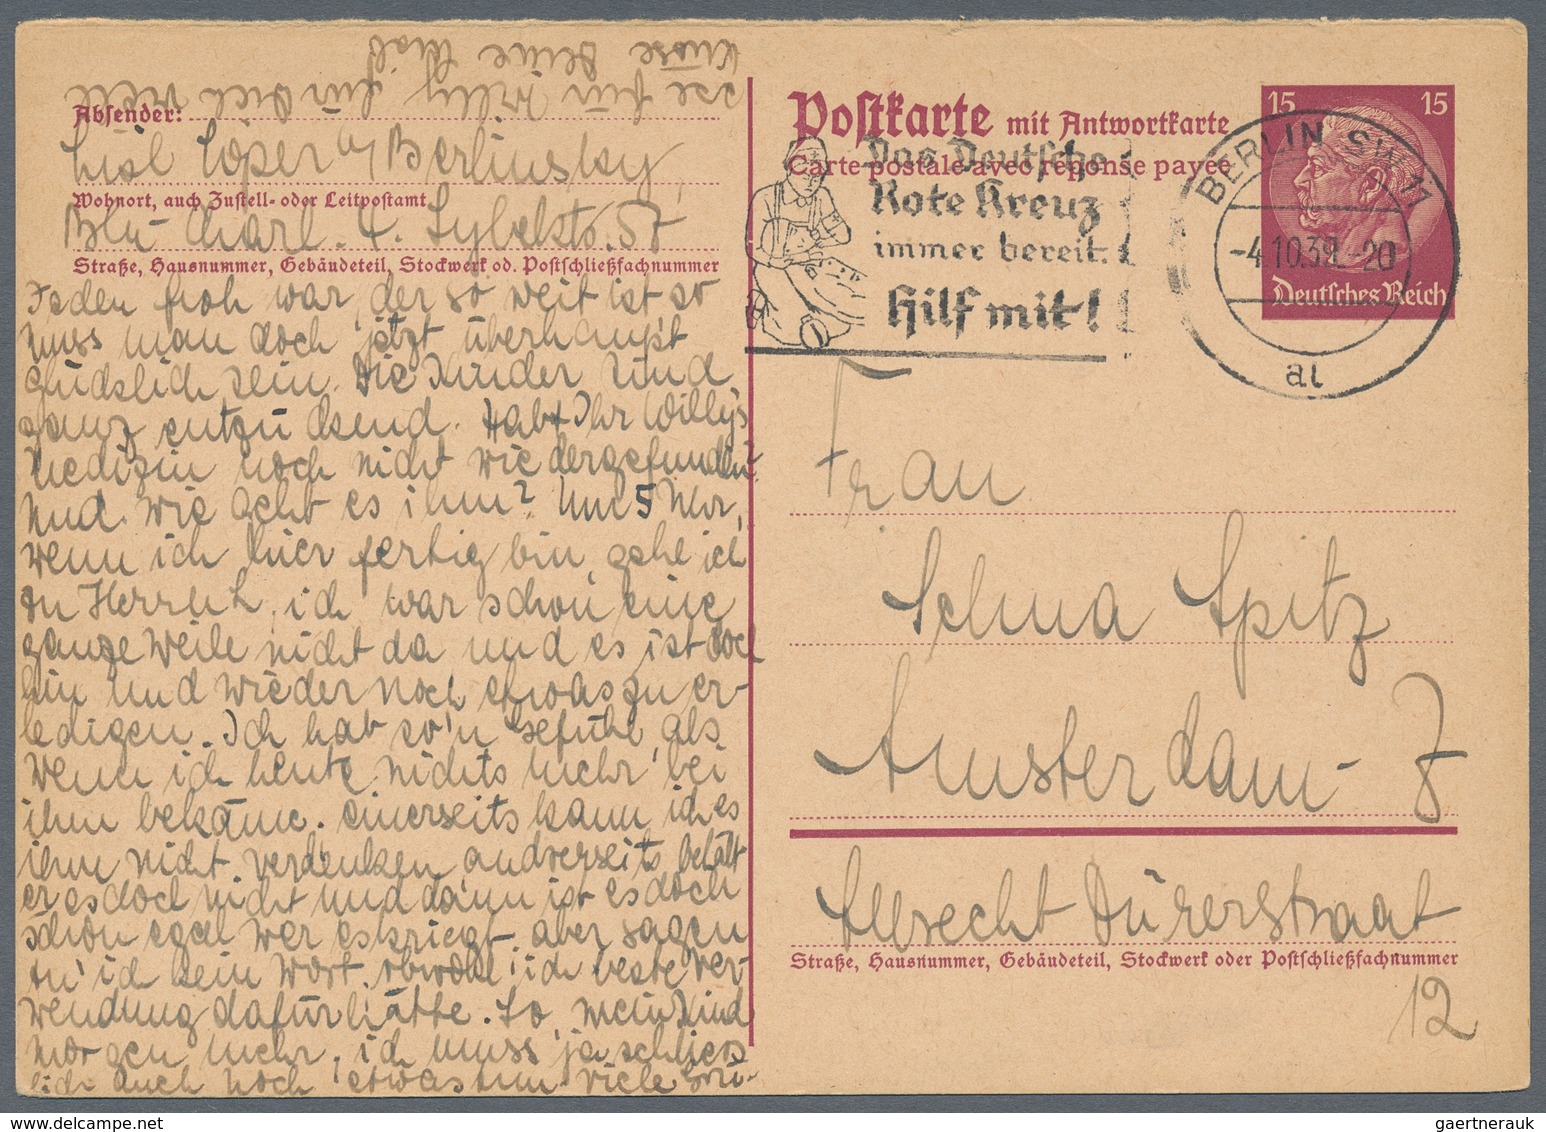 Absender:
Lisl Löper b/ Berlinsky,
Wohnort, auch Zustell- oder Leitpostamt
Bln Charl. 4. Sybelstr. 57
Straße, Hausnummer, Gebäudeteil, Stockwerk od. Postschließfachnummer
Jeden froh war, der so weit ist, so
muss man doch jetzt überhaupt
glücklich sein. Die Kinder sind
ganz entzückend. Habt Ihr Willy's
Medizin noch nicht wiedergefunden?
Und wie geht es ihm? Um 5 Uhr,
wenn ich hier fertig bin, gehe ich
zu Herrn L, ich war schon eine
ganze Weile nicht da und es ist doch
hin und wieder noch etwas zu er-
ledigen. Ich hab so'n Gefühl, als
wenn ich heute nichts mehr bei
ihm bekäme. einerseits kann ich es
ihm nicht verdenken, andrerseits behält
er es doch nicht und dann ist es doch
schon egal wer es kriegt, aber sagen
tu' ich kein Wort, obwohl ich beste Ver-
wendung dafür hätte. So, mein Kind
morgen mehr, ich muss ja schliess
lich auch noch etwas tun. Viele Grü-
sse für Willy für Dich viele
Küsse Deine
Postkarte mit Antwortkarte
Carte postale avec réponse payée
Das Deutsche
Rote Kreuz
immer bereit.
Hilf mit!
BERLIN SW 11
-4.10.39.-20
al
15 15
Deutsches Reich
Frau
Selma Spitz
Amsterdam-Z
Albrecht Dürerstraat
Straße, Hausnummer, Gebäudeteil, Stockwerk oder Postschließfachnummer
12
gaertnerauk @ delcampe.net